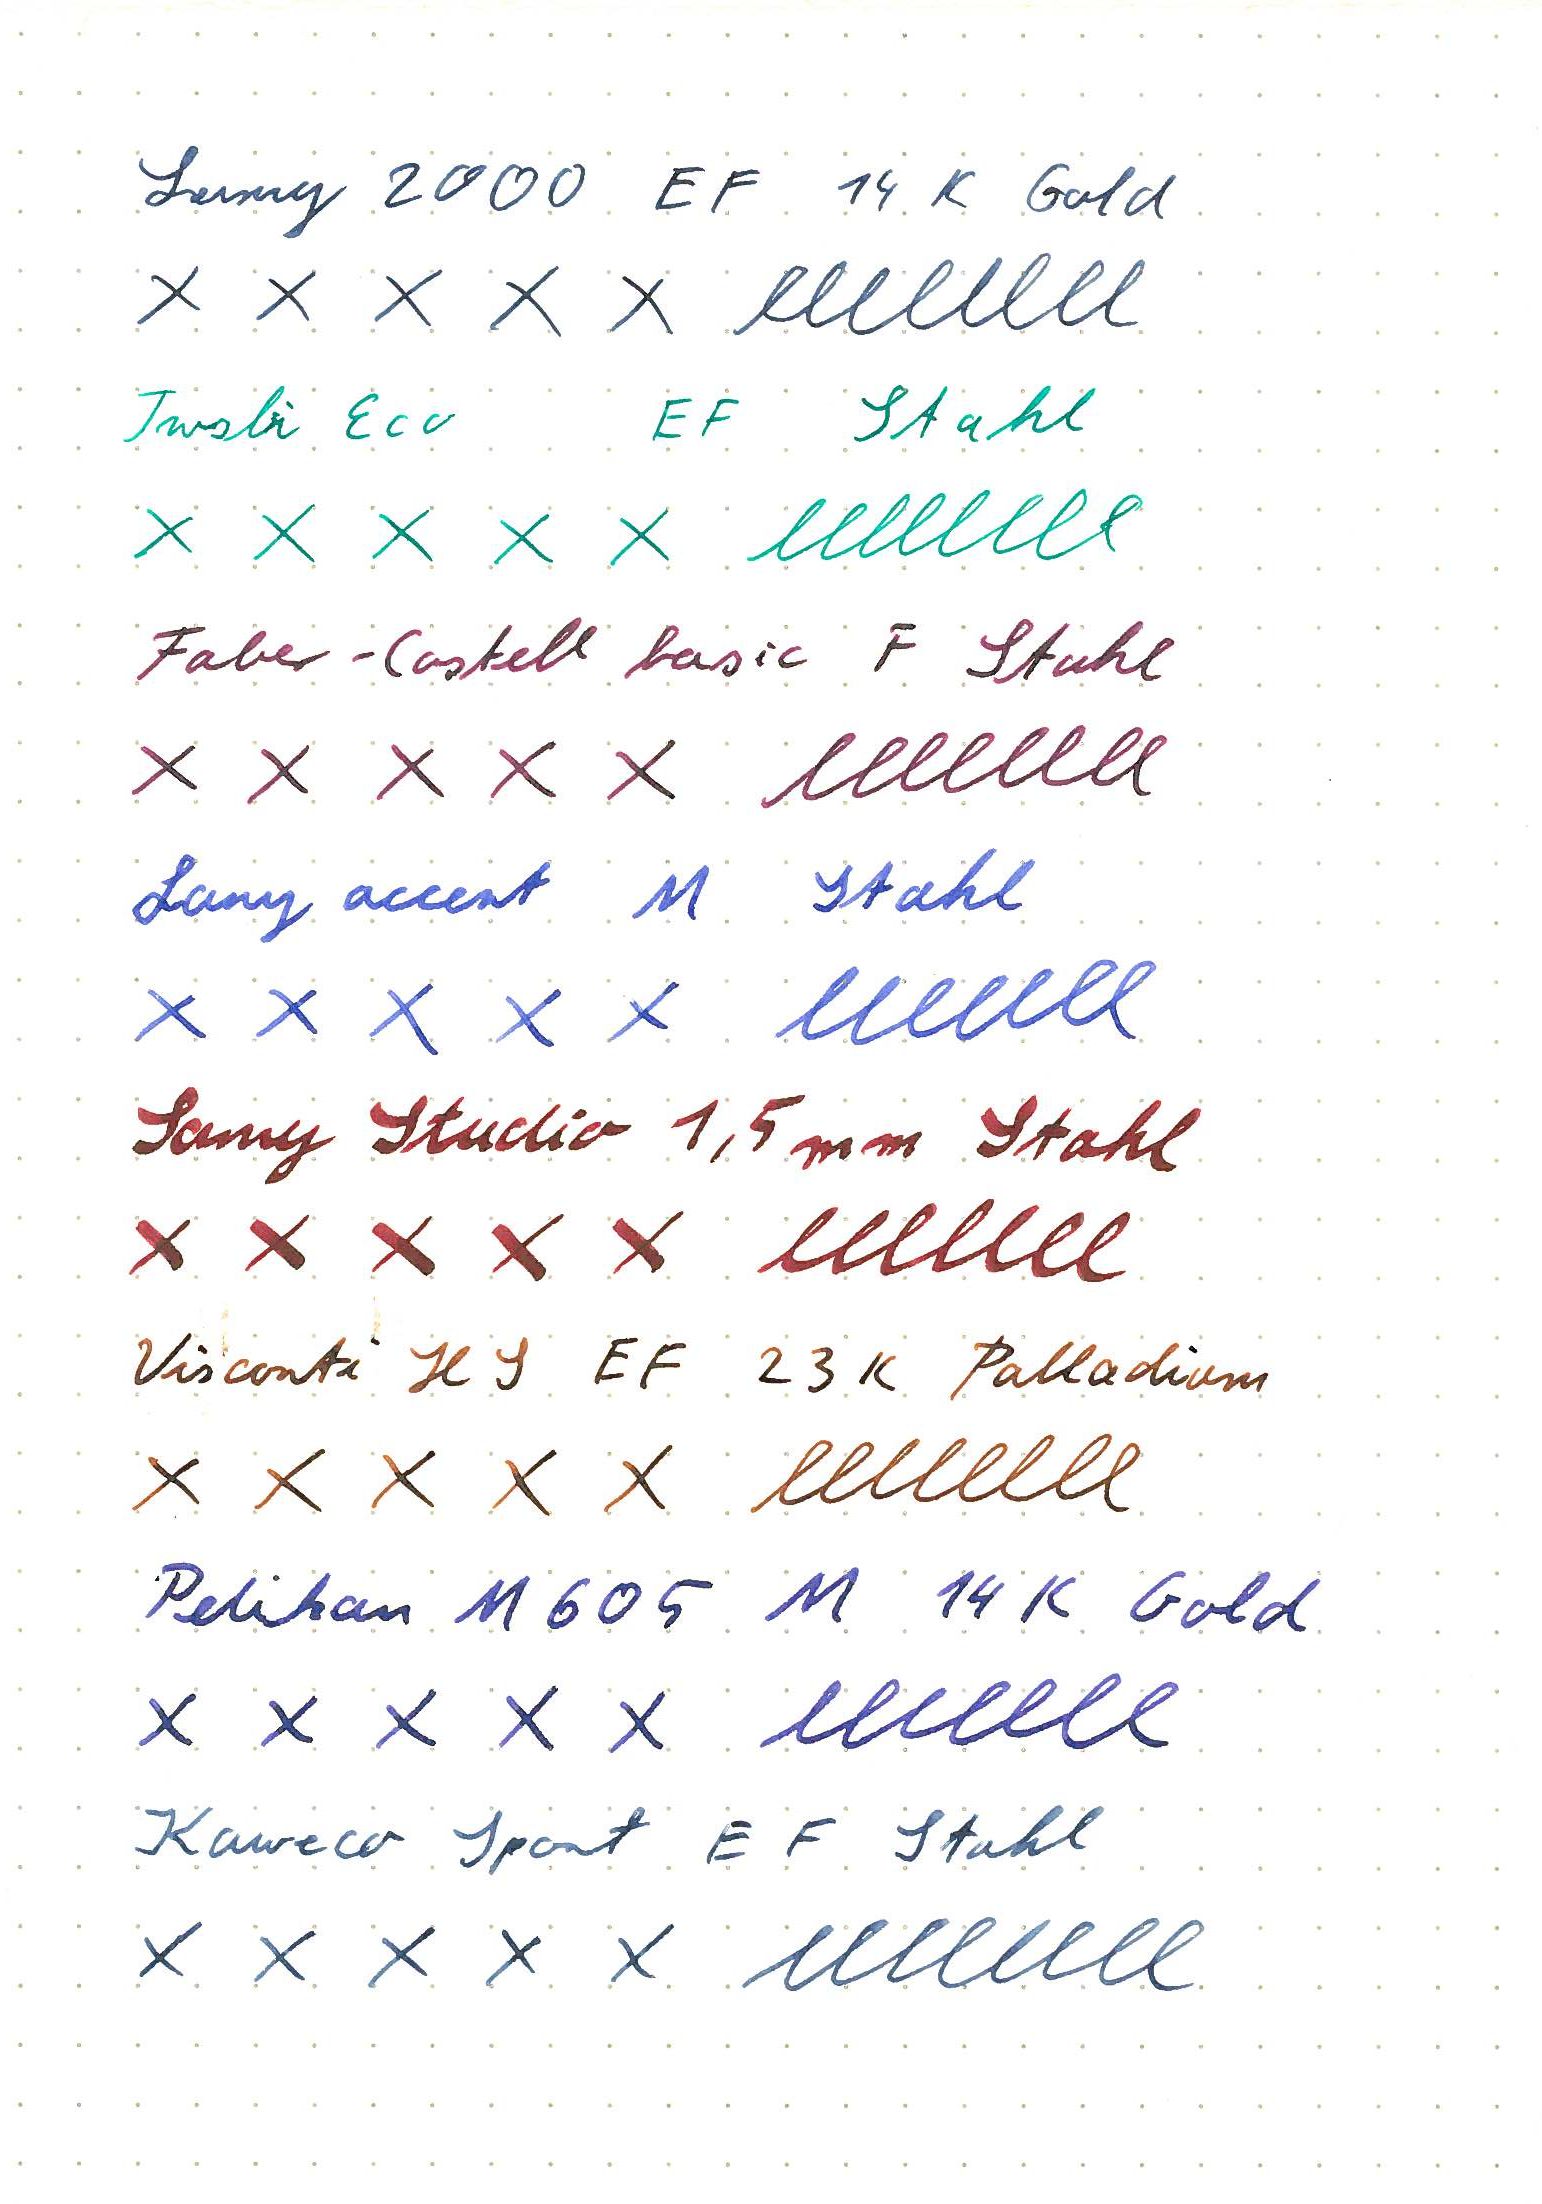 Lamy 2000 EF 14 K Gold
x x x x x llllllll
Twsbi Eco EF Stahl
x x x x x llllllll
Faber-Castell basic F Stahl
x x x x x lllllll
Lamy accent M Stahl
x x x x x lllllll
Lamy Studio 1,5 mm Stahl
x x x x x lllllll
Visconti HS EF 23 K Palladium
x x x x x llllllll
Pelikan M605 M 14 K Gold
x x x x x lllllll
Kaweco Sport EF Stahl
x x x x x llllllll